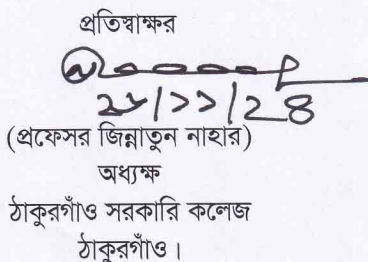 প্রতিস্বাক্ষর
(প্রফেসর জিন্নাতুন নাহার)
অধ্যক্ষ
ঠাকুরগাঁও সরকারি কলেজ
ঠাকুরগাঁও।